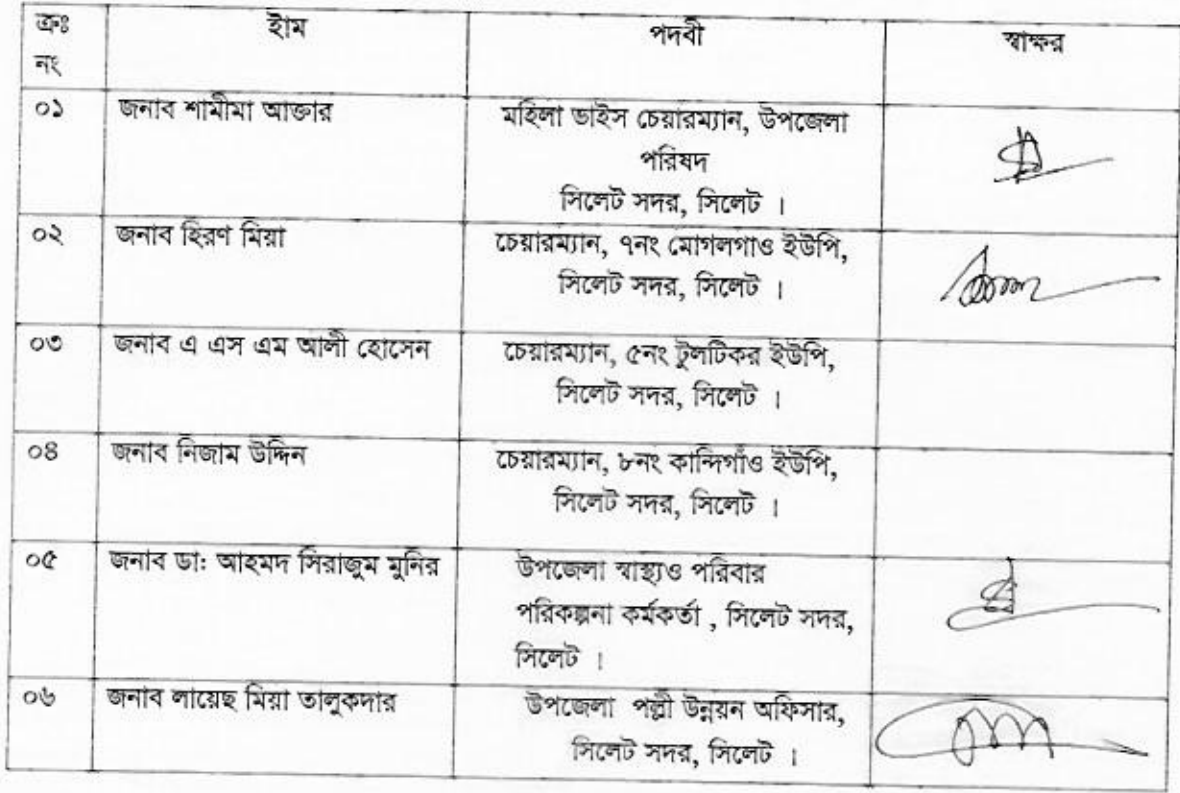 ক্রঃ নং ইাম পদবী স্বাক্ষর
০১ জনাব শামীমা আক্তার মহিলা ভাইস চেয়ারম্যান, উপজেলা
পরিষদ
সিলেট সদর, সিলেট ।
০২ জনাব হিরণ মিয়া চেয়ারম্যান, ৭নং মোগলগাও ইউপি,
সিলেট সদর, সিলেট ।
০৩ জনাব এ এস এম আলী হোসেন চেয়ারম্যান, ৫নং টুলটিকর ইউপি,
সিলেট সদর, সিলেট ।
০৪ জনাব নিজাম উদ্দিন চেয়ারম্যান, ৮নং কান্দিগাঁও ইউপি,
সিলেট সদর, সিলেট ।
০৫ জনাব ডা: আহমদ সিরাজুম মুনির উপজেলা স্বাস্থ্যও পরিবার
পরিকল্পনা কর্মকর্তা , সিলেট সদর,
সিলেট ।
০৬ জনাব লায়েছ মিয়া তালুকদার উপজেলা পল্লী উন্নয়ন অফিসার,
সিলেট সদর, সিলেট ।